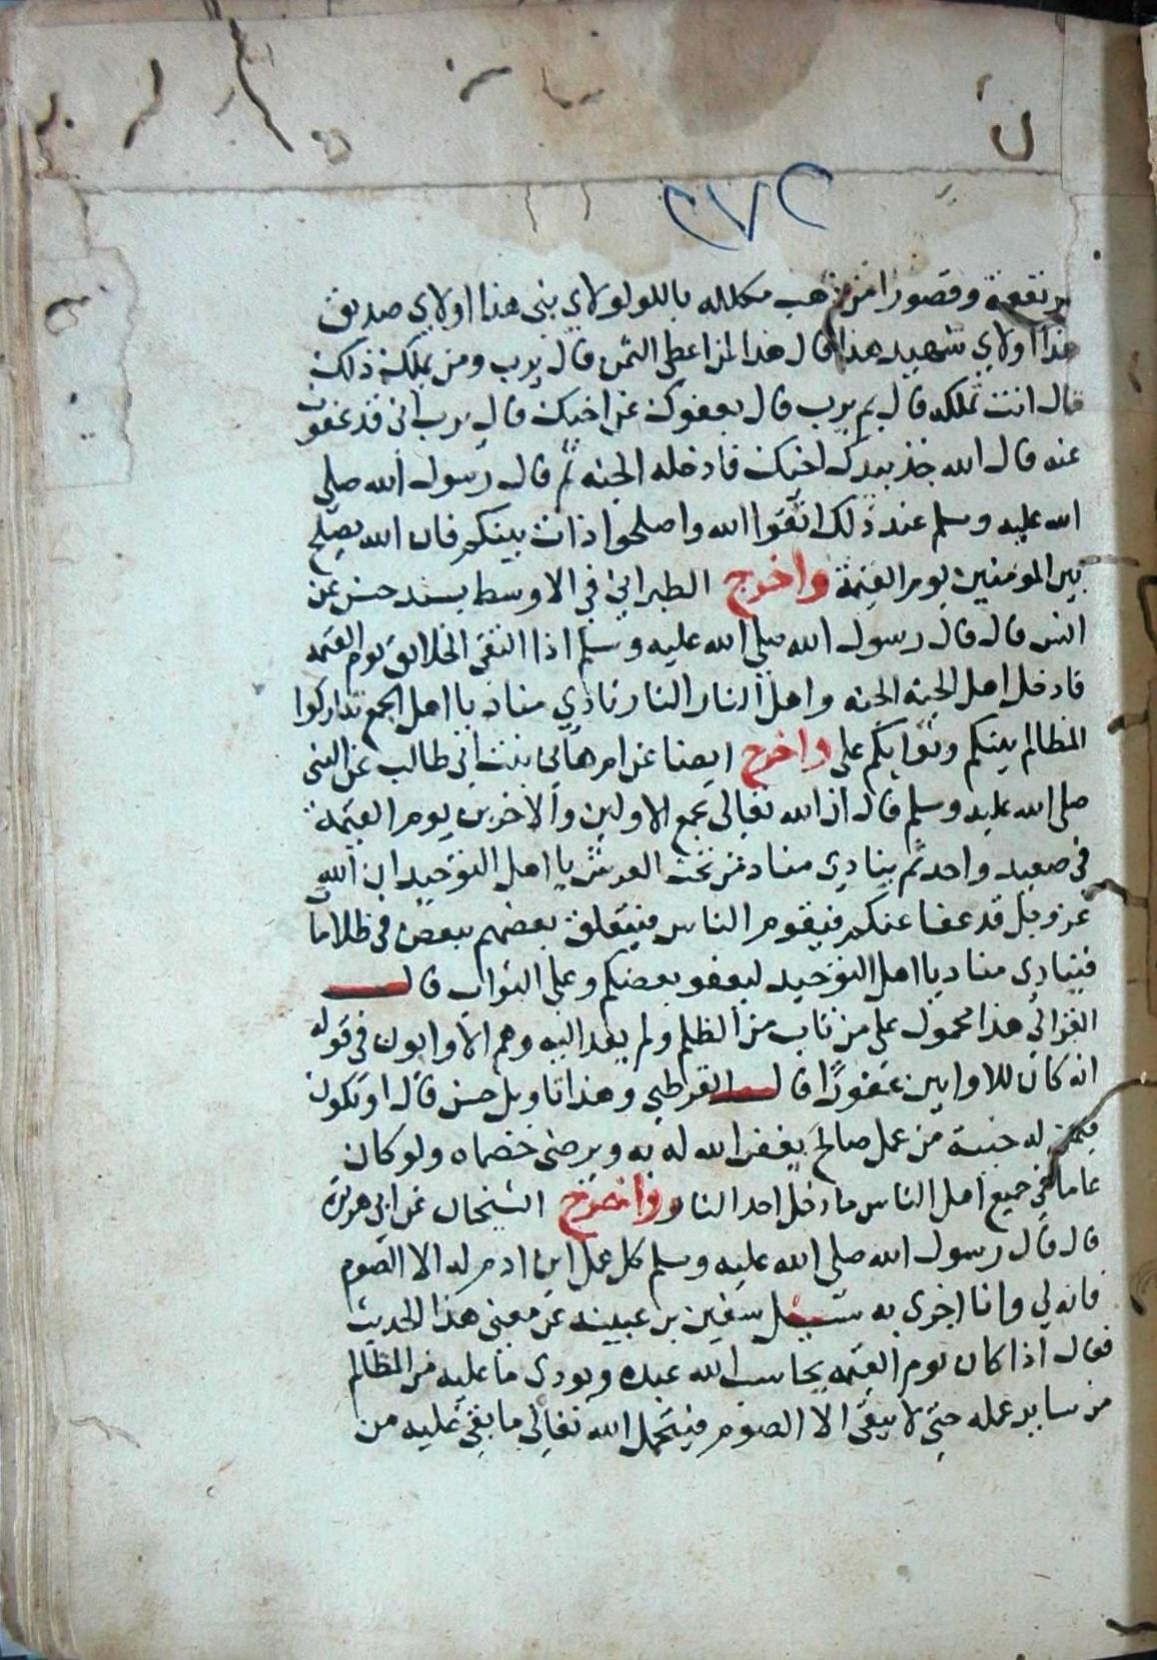 ٢٧٢
مرتفعة وقصورا من ذهب مكلله باللولو لاي نبي هذا او لاي صديق
هذا او لاي شهيد هذا قال هذا لمن اعطى الثمن قال يرب ومن يملك ذلك
قال انت تملكه قال بم يرب قال بعفوك عن اخيك قال يرب اني قد عفوت
عنه قال الله خذ بيدك اخيك فادخله الجنه ثم قال رسول الله صلى
الله عليه وسلم عند ذلك اتقوا الله واصلحوا ذات بينكم فان الله يصلح
بين المومنين يوم القيمة واخرج الطبراني في الاوسط بسند حسن عن
انس قال قال رسول الله صلى الله عليه وسلم اذا التقى الخلائق يوم القيمه
فادخل اهل الجنه الجنه واهل النار النار نادي مناد يا اهل الجمع تداركوا
المظالم بينكم وثوابكم علي واخرج ايضا عن ام هاني بنت ابي طالب عن النبي
صلى الله عليه وسلم قال ان الله تعالى يجمع الاولين والاخرين يوم القيمة
في صعيد واحد ثم ينادي مناد من تحت العرش يا اهل التوحيد ان الله
عز وجل قد عفا عنكم فيقوم الناس فيتعلق بعضهم ببعض في ظلاما
فينادي مناد يا اهل التوحيد ليعفو بعضكم وعلي الثواب قال
الغزالي هذا محمول على من تاب من الظلم ولم يعد اليه وهم الاوابون في قوله
انه كان للاوابين غفورا قال القرطبي وهذا تاويل حسن قال او تكون
فيمن له خبية من عمل صالح يغفر الله له به ويرضى خصماه ولو كان
عاما في جميع اهل الناس ما دخل احد النار واخرج الشيخان عن ابي هريرة
قال قال رسول الله صلى الله عليه وسلم كل عمل ابن ادم له الا الصوم
فانه لي وانا اجزي به سئل سفين بن عيينه عن معنى هذا الحديث
فقال اذا كان يوم القيمه يحاسب الله عبده ويودي ما عليه من المظالم
من ساير عمله حتى لا يبقى الا الصوم فيتحمل الله تعالى ما بقي عليه من